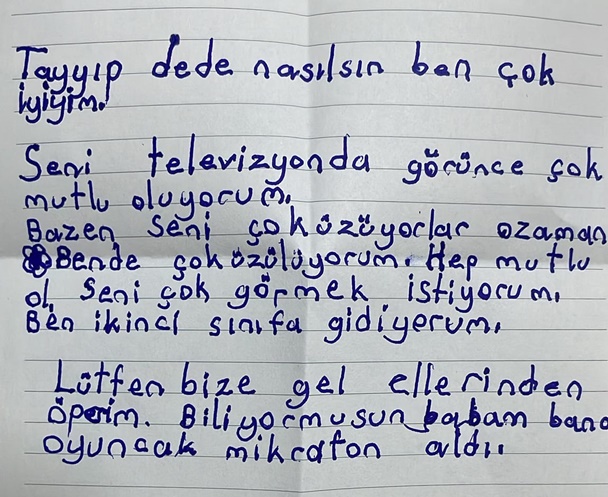 Tayyip dede nasılsın ben çok
iyiyim.
Seni televizyonda görünce çok
mutlu oluyorum.
Bazen seni çok üzüyorlar ozaman
Bende çok üzülüyorum. Hep mutlu
ol. Seni çok görmek istiyorum.
Ben ikinci sınıfa gidiyerum.
Lütfen bize gel ellerinden
öperim. Biliyormusun babam bana
oyuncak mikrafon aldı.